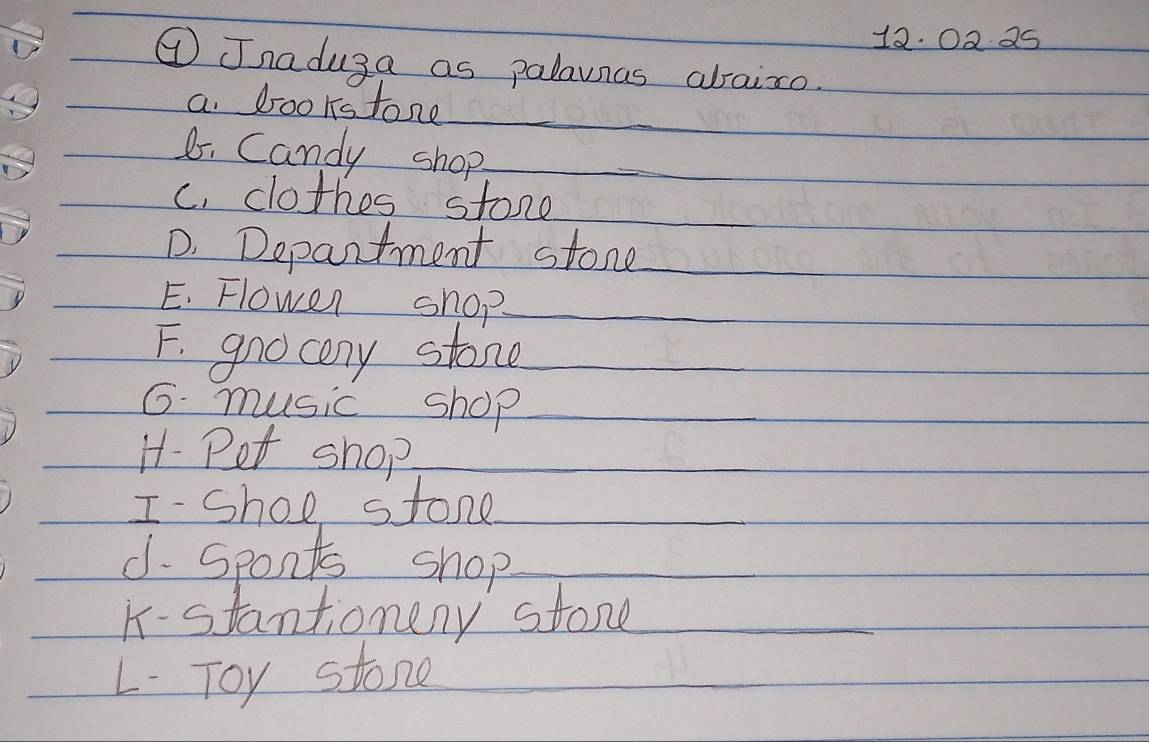 12.02.25
① Traduza as palavras abaixo.
a. bookstore
b. Candy shop
C. clothes store
D. Department store
E. Flower shop
F. grocery store
G- music shop
H- Pet shop
I- Shoe store
J- Sports shop
K- Stantionery store
L- Toy store